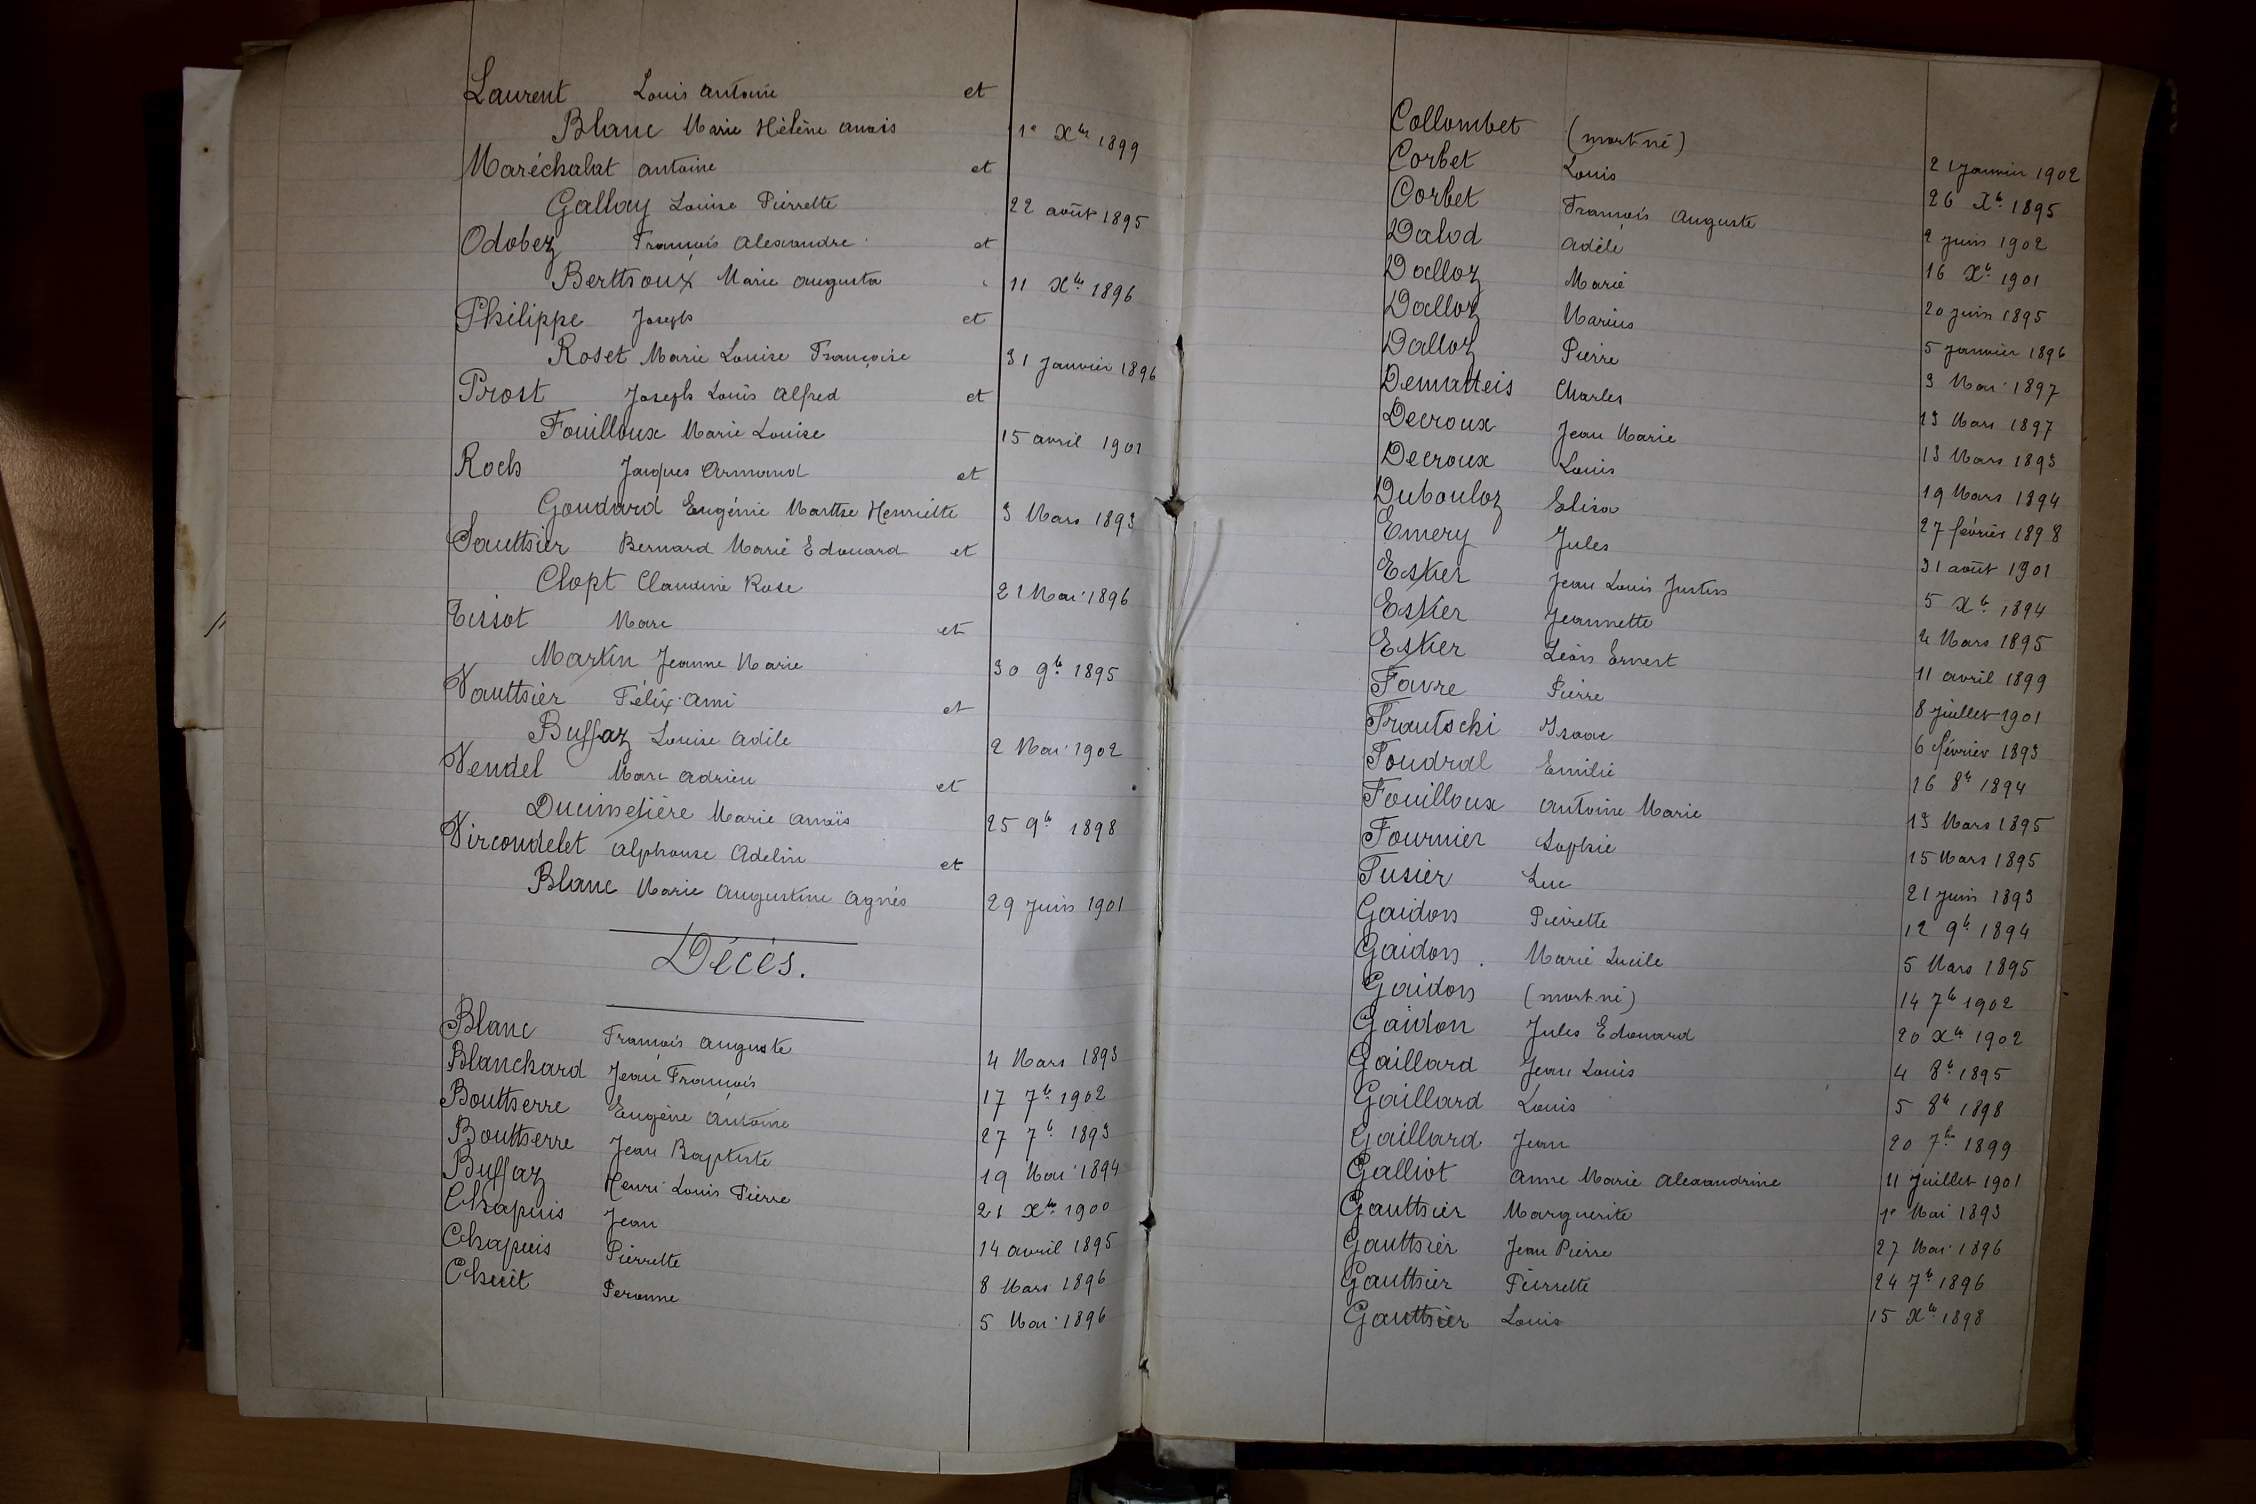 Laurent Louis Antoine et
Blanc Marie Hélène Anaïs 1e Xbre 1899
Maréchalat Antoine et
Gallay Louise Pierrette 22 août 1895
Odobez François Alexandre et
Berthoux Marie Augusta 11 Xbre 1896
Philippe Joseph et
Roset Marie Louise Françoise 31 Janvier 1896
Prost Joseph Louis Alfred et
Fouilloux Marie Louise 15 avril 1901
Roch Jacques Armand et
Goudard Eugénie Marthe Henriette 3 Mars 1893
Sauthier Bernard Marie Edouard et
Clopt Claudine Rose 21 Mai 1896
Tissot Marc et
Martin Jeanne Marie 30 9b. 1895
Vauthier Félix Ami et
Buffaz Louise Adèle 2 Mai 1902
Vendel Marc Adrien et
Ducimetière Marie Anaïs 25 9b 1898
Vircondelet Alphonse Adelin et
Blanc Marie Augustine Agnès 29 Juin 1901
Décès.
Blanc François Auguste 4 Mars 1893
Blanchard Jean François 17 7b. 1902
Boutherre Eugène Antoine 27 7b. 1893
Boutherre Jean Baptiste 19 Mai 1894
Buffaz Henri Louis Pierre 21 Xbre 1900
Chapuis Jean 14 avril 1895
Chapuis Pierrette 8 Mars 1896
Chuit Peronne 5 Mai 1896
Collombet (mort né) 21 Janvier 1902
Corbet Louis 26 Xb. 1895
Corbet François Auguste 2 juin 1902
Dalod Adèle 16 Xb. 1901
Dalloz Marie 20 juin 1895
Dalloz Marius 5 Janvier 1896
Dalloz Pierre 3 Mai 1897
Dematteis Charles 13 Mars 1897
Decroux Jean Marie 13 Mars 1893
Decroux Louis 19 Mars 1894
Dubouloz Elisa 27 février 1898
Emery Jules 31 août 1901
Estier Jean Louis Justin 5 Xb. 1894
Estier Jeannette 4 Mars 1895
Estier Léon Ernest 11 avril 1899
Favre Pierre 8 Juillet 1901
Frautschi Isaac 6 février 1893
Foudral Emilie 16 8b 1894
Fouilloux Antoine Marie 13 Mars 1895
Fournier Sophie 15 Mars 1895
Fusier Luc 21 Juin 1893
Gaidon Pierrette 12 9b. 1894
Gaidon Marie Lucile 5 Mars 1895
Gaidon (mort né) 14 7b 1902
Gaidon Jules Edouard 20 Xb 1902
Gaillard Jean Louis 4 8b. 1895
Gaillard Louis 5 8b 1898
Gaillard Jean 20 7b. 1899
Galliot Anne Marie Alexandrine 11 Juillet 1901
Gauthier Marguerite 1e Mai 1893
Gauthier Jean Pierre 27 Mai 1896
Gauthier Pierrette 24 7b. 1896
Gauthier Louis 15 Xb. 1898